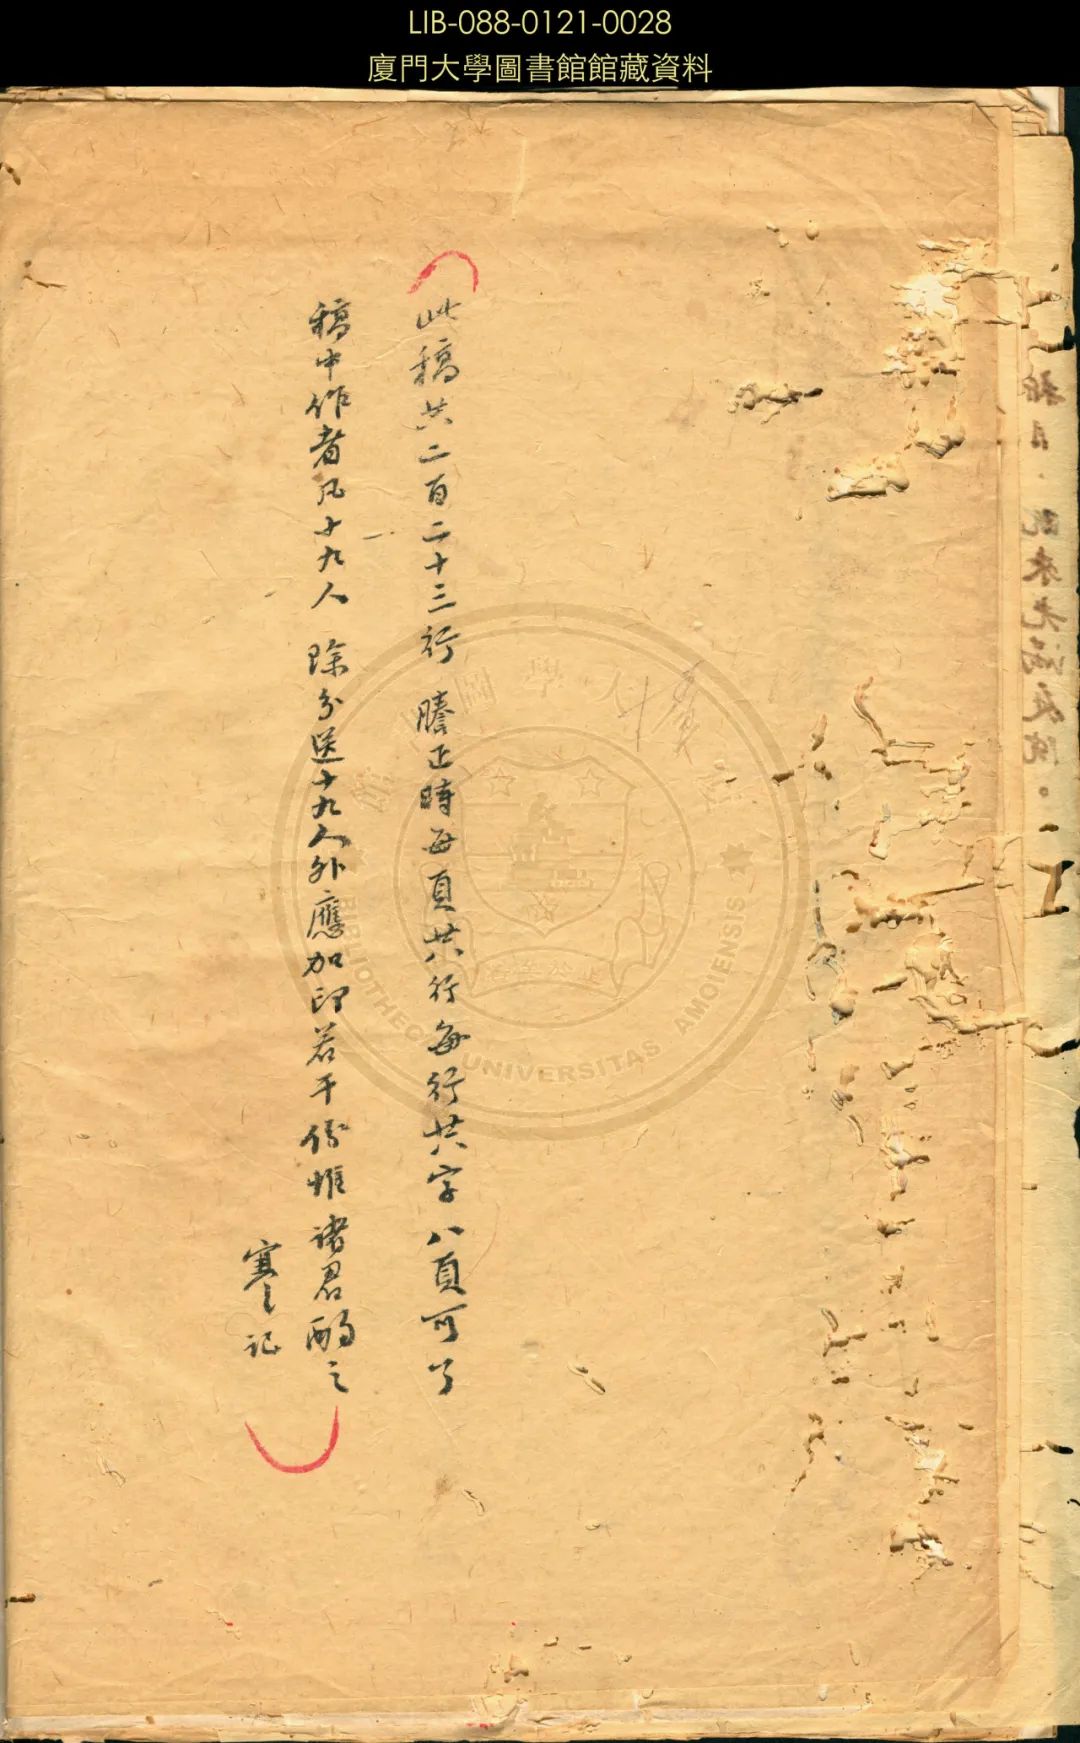 LIB-088-0121-0028
廈門大學圖書館館藏資料
此稿共二百二十三行 謄正時每頁共行每行共字八頁可了
稿中作者凡十九人 除分送十九人外應加印若干份惟諸君酌之
寒記
BIBLIOTHECA UNIVERSITAS AMOIENSIS
來光滿庭院。